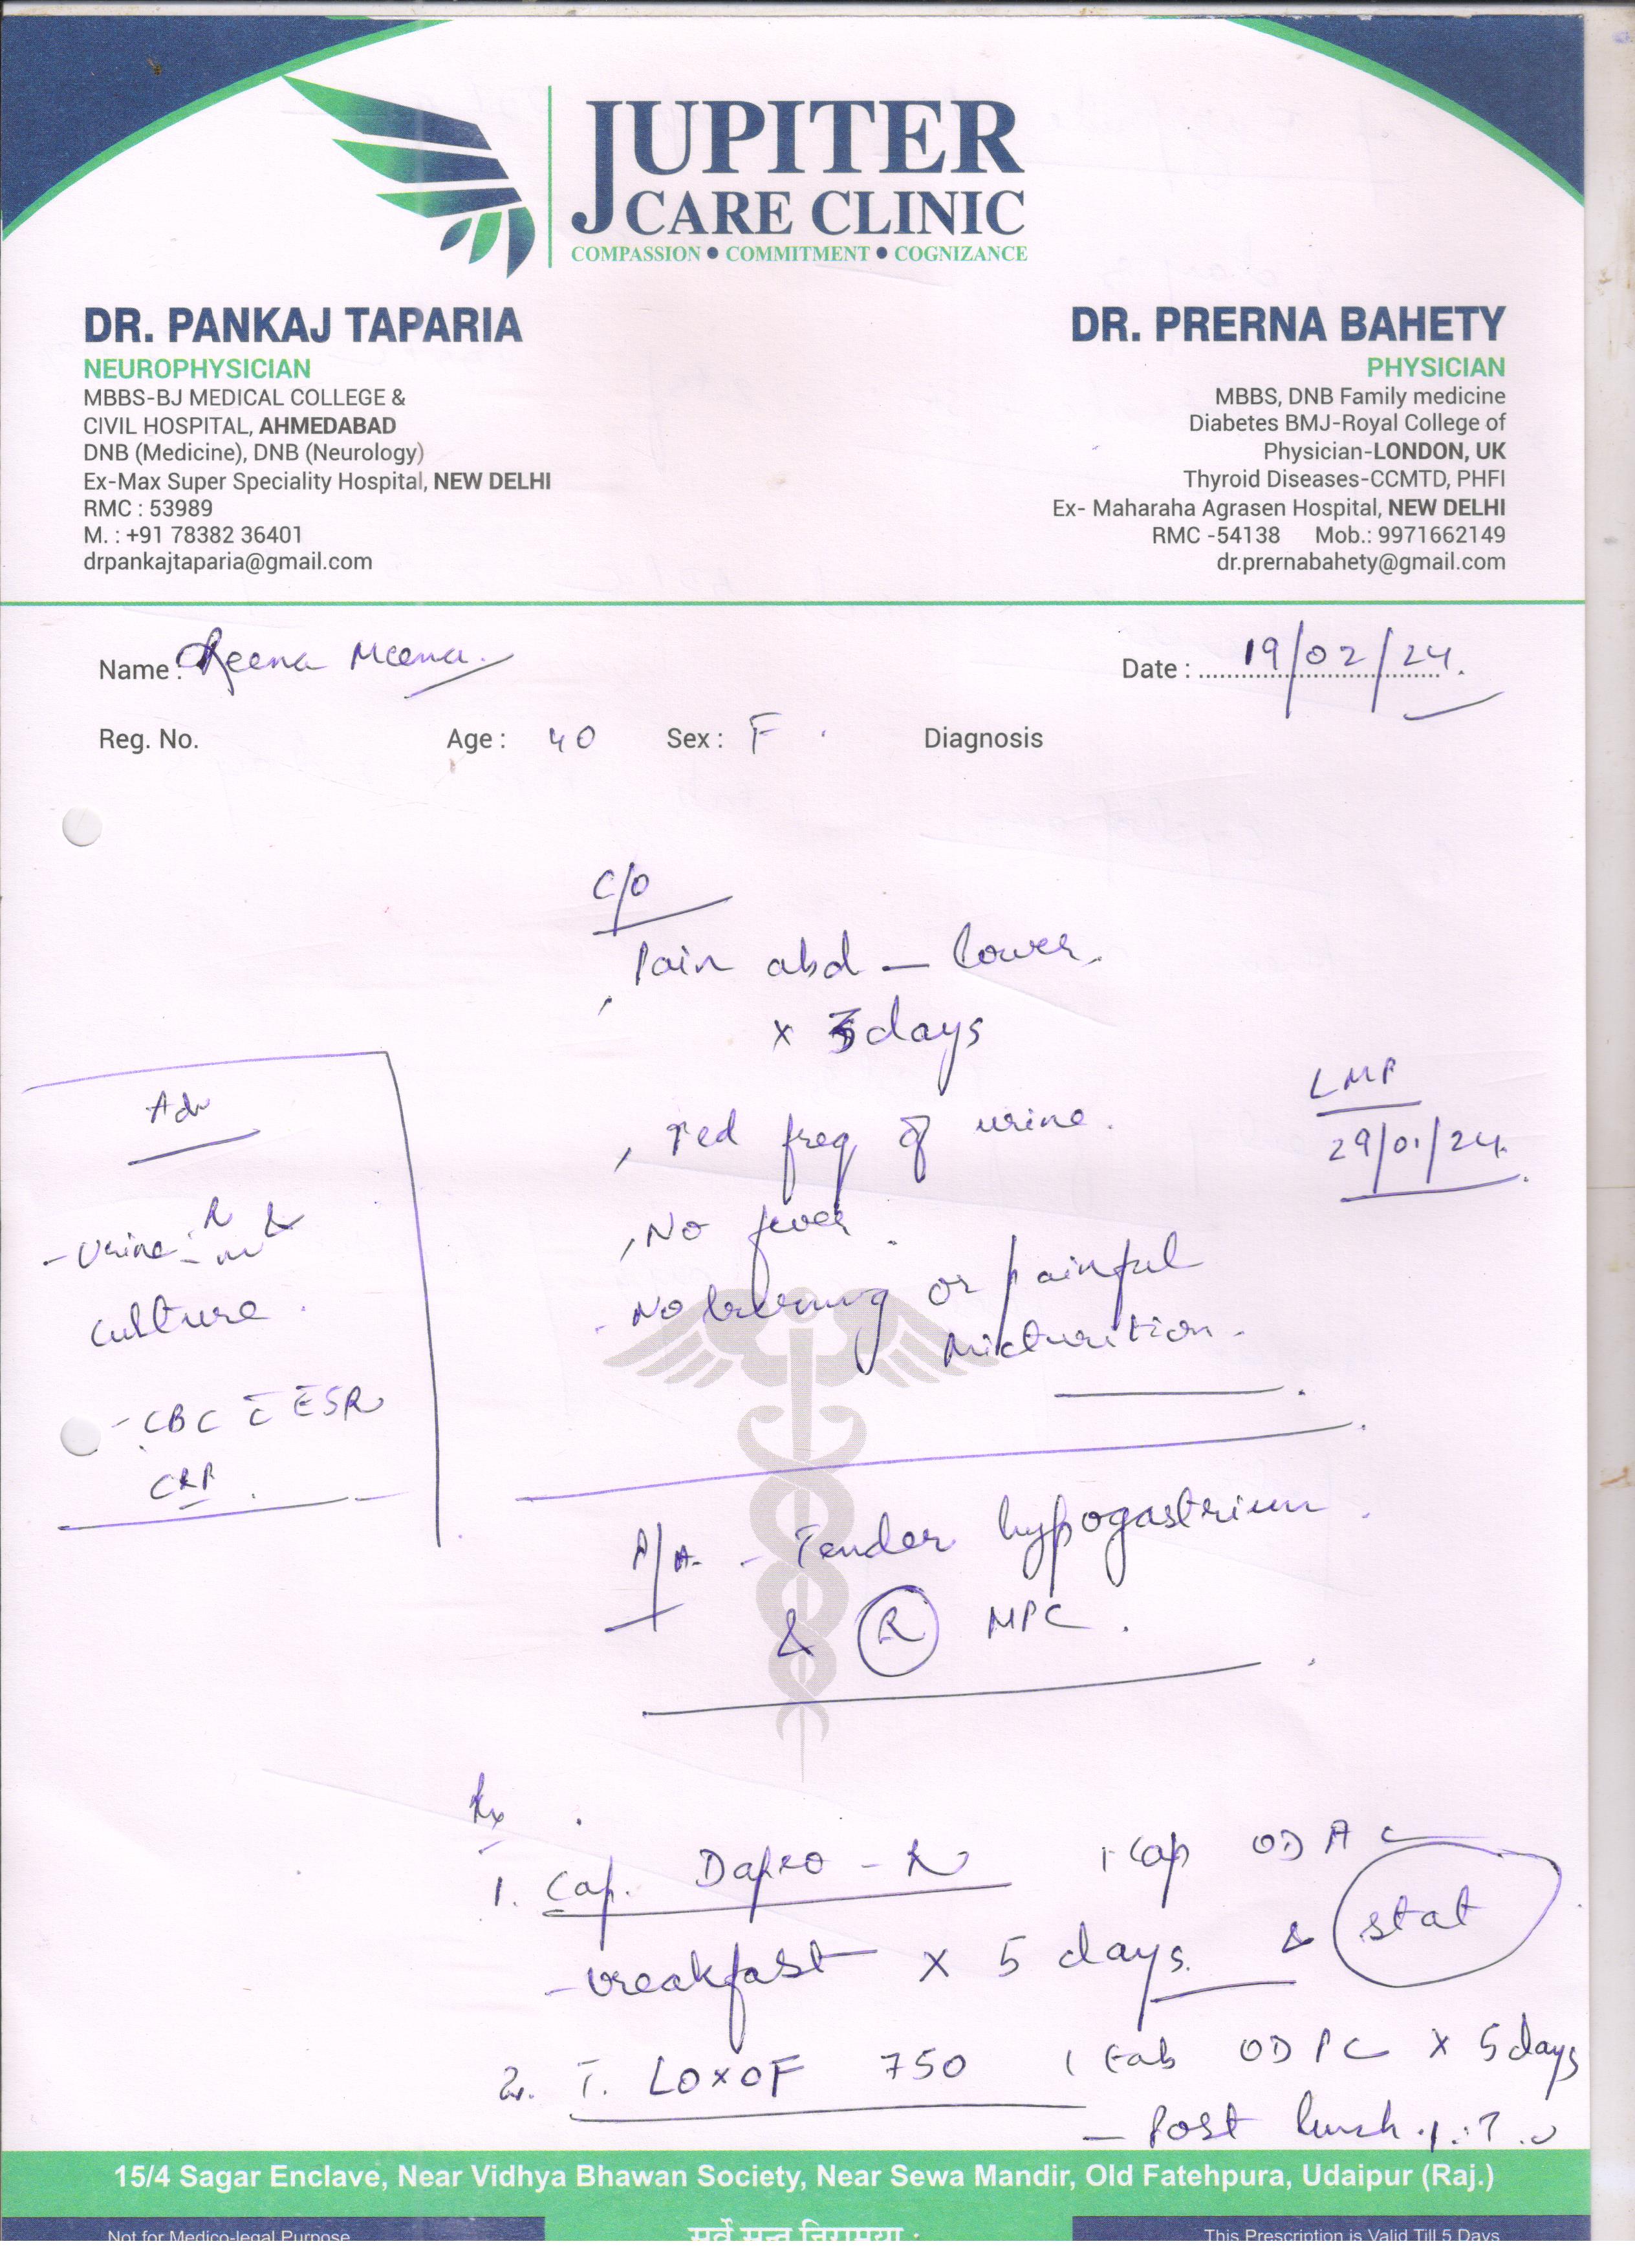 JUPITER
CARE CLINIC
COMPASSION ● COMMITMENT ● COGNIZANCE
DR. PANKAJ TAPARIA
NEUROPHYSICIAN
MBBS-BJ MEDICAL COLLEGE &
CIVIL HOSPITAL, AHMEDABAD
DNB (Medicine), DNB (Neurology)
Ex-Max Super Speciality Hospital, NEW DELHI
RMC : 53989
M. : +91 78382 36401
drpankajtaparia@gmail.com
DR. PRERNA BAHETY
PHYSICIAN
MBBS, DNB Family medicine
Diabetes BMJ-Royal College of
Physician-LONDON, UK
Thyroid Diseases-CCMTD, PHFI
Ex- Maharaha Agrasen Hospital, NEW DELHI
RMC -54138 Mob.: 9971662149
dr.prernabahety@gmail.com
Name : Reena Meena.
Date : 19/02/24.
Reg. No. Age : 40 Sex : F. Diagnosis
C/O
, Pain abd – lower.
x 3 days
, ↑ed freq of urine.
, No fever.
- No burning or painful
micturition.
LMP
29/01/24.
Adv
- Urine - R & m
culture.
- CBC c̄ ESR
CRP.
P/A. - Tender hypogastrium.
& (R) MPC.
Rx
1. Cap. Dapro - R 1 cap OD AC
- breakfast x 5 days. & stat
2. T. LOXOF 750 1 tab OD PC x 5 days
- Post lunch
15/4 Sagar Enclave, Near Vidhya Bhawan Society, Near Sewa Mandir, Old Fatehpura, Udaipur (Raj.)
Not for Medico-legal Purpose
सर्वे सन्तु निरामया :
This Prescription is Valid Till 5 Days